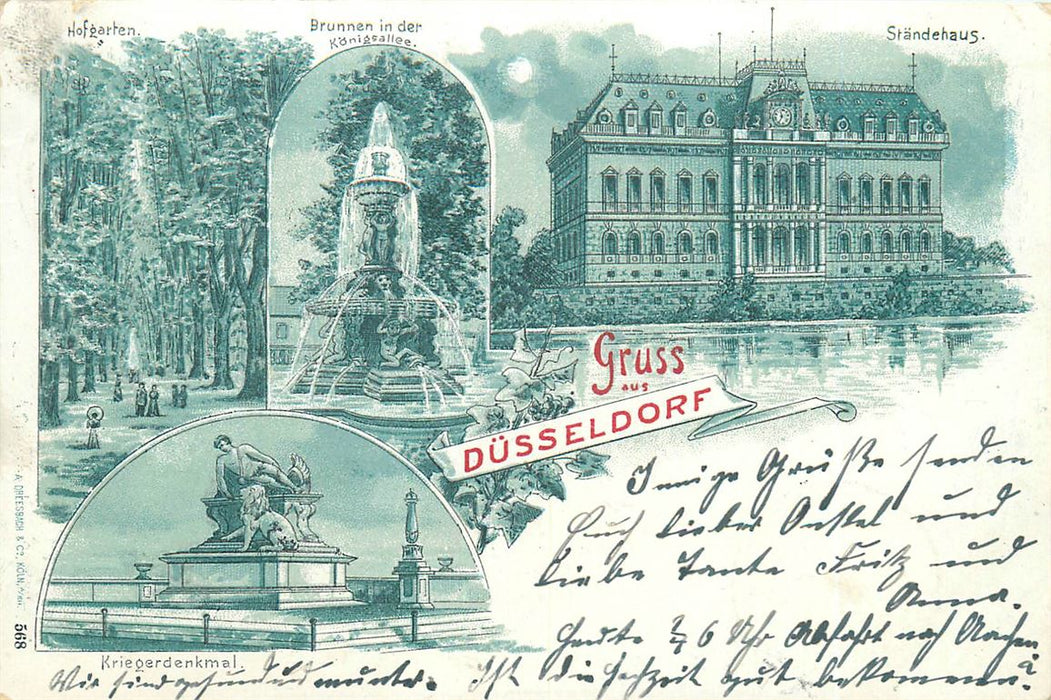 Hofgarten.
Brunnen in der
Königsallee.
Ständehaus.
Gruss
aus
DÜSSELDORF
Innige Grüße senden
Euch lieber Onkel und
liebe Tante Fritz und
Anna.
Heute 6 Uhr Abfahrt nach Aachen.
Kriegerdenkmal.
Wir sind gesund und munter.
Ist die Hochzeit gut bekommen?
A. DREESBACH & Co. KÖLN,
568